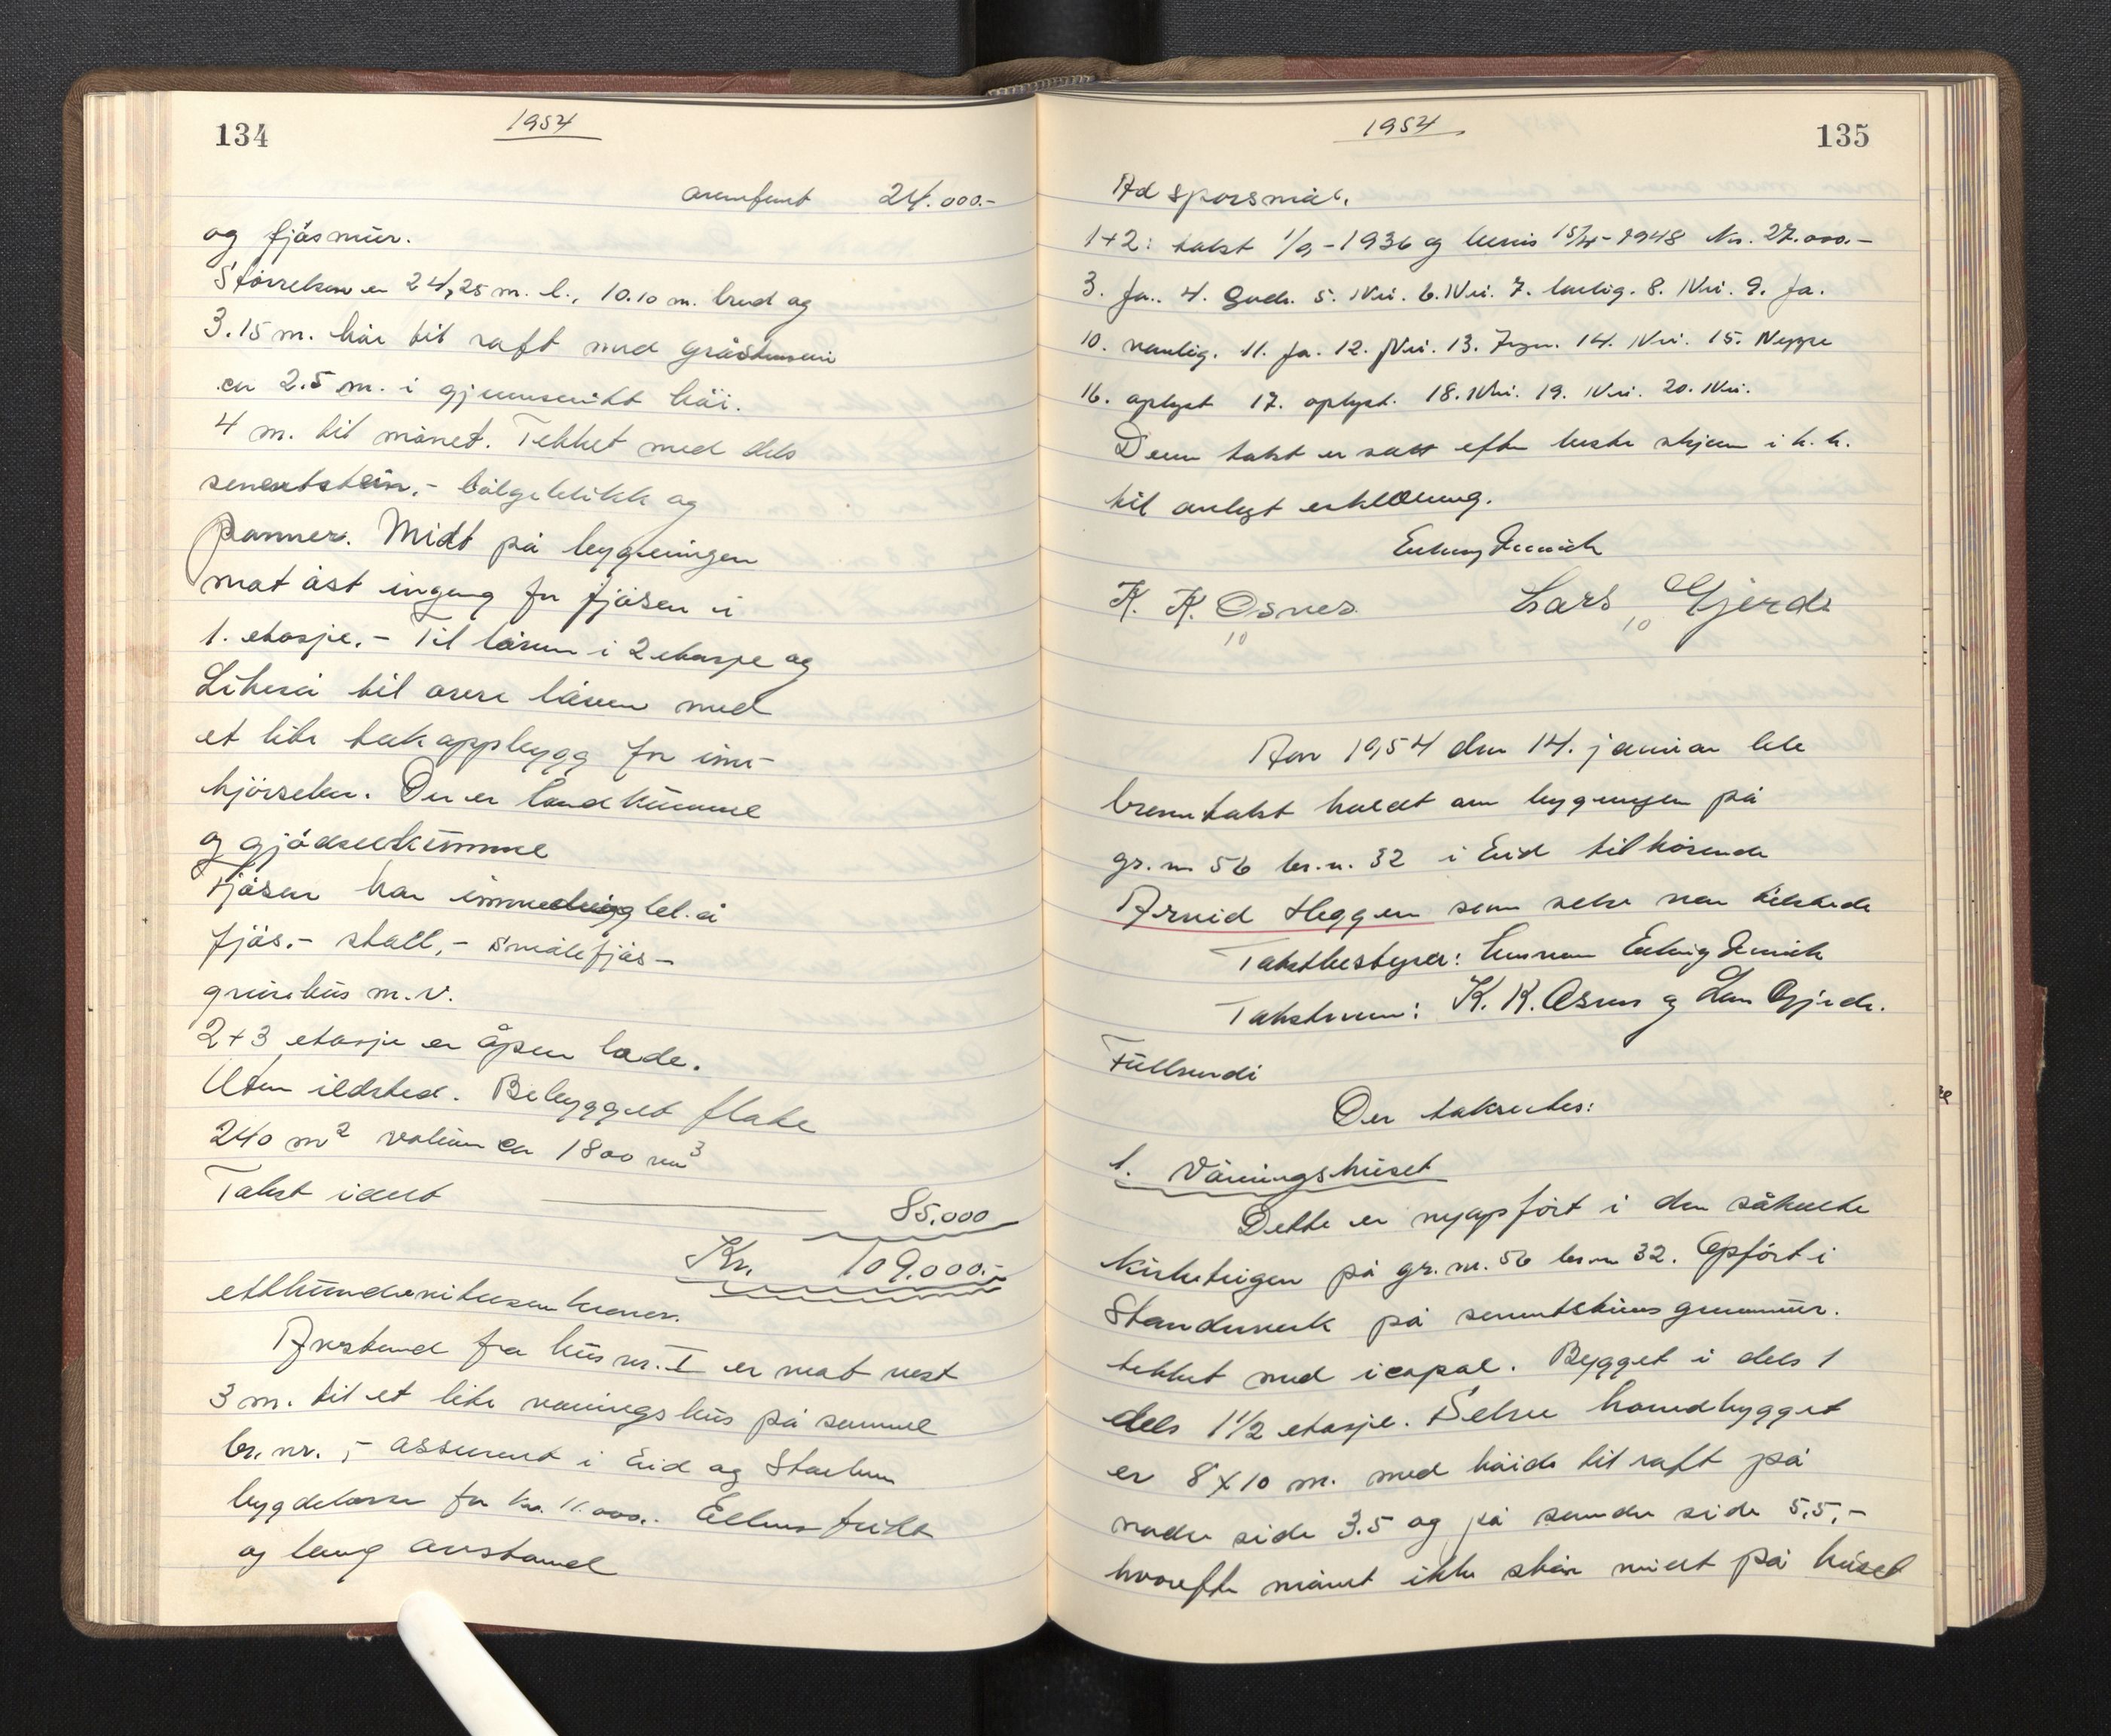 134
1954
overført 24.000.-
og fjøsmur.
Størrelsen er 24,25 m. l., 10.10 m. bred og
3.15 m. høi til raft med gråstensmur
ca 2.5 m. i gjennsnitt høi.
4 m. til mønet. Tekket med dels
sementstein,- bølgeblikk og
panner. Midt på bygningen
mot øst ingang for fjøsen i
1. etasje.- Til låven i 2 etasje og
Likeså til øvre låven med
et lite takoppbygg for inn-
kjørselen. Der er landkumme
og gjødselkumme
Fjøsen har innredning bl. a
fjøs,- stall,- småfefjøs-
grisehus m.v.
2+3 etasje er åpen lade.
Uten ildsted. Bebygget flate
240 m² volum ca 1800 m³
Takst idelt 85.000
Kr. 109.000.-
etthundrenitusen kroner.
Avstand fra hus nr. I er mot vest
3 m. til et lite vaningshus på samme
br. nr.,- assurert i Eid og
bygdekasse for kr. 11.000.- Ellers fritt
og lang avstand
1954
135
Ad spørsmål.
1+2: takst 1/9-1936 og 15/4-1948 Kr. 27.000.-
3. Ja. 4. Gode. 5. Nei. 6. Nei. 7. 8. Nei. 9. Ja.
10. vanlig. 11. Ja. 12. Nei. 13. Ingen. 14. Nei. 15. Neppe
16. oplyst 17. oplyst. 18. Nei. 19. Nei. 20. Nei.
Denne takst er satt efter beste skjønn i h. h.
til avlagt erklæring.
Erling
K. K. Osnes Lars Gjerde
10 10
Aar 1954 den 14. januar ble
branntakst holdt over bygningen på
gr. nr 56 br. n. 32 i Eid tilhørende
Arvid Heggen som selv var tilstede
Takstbestyrer: Erling
Takstmenn: K. K. Osnes og Lars Gjerde.
Fullmendi
Der takseres:
1. Våningshuset
Dette er nyoppført i den såkalte
Kirketeigen på gr. nr. 56 br. nr 32. Opført i
Standverk på sementstens grunnmur.
tekket med icopal. Bygget i dels 1
dels 1 1/2 etasje. Selve hovedbygget
er 8 X 10 m. med høide til raft på
nordre side 3.5 og på søndre side 5,5,-
hvorefter mønet ikke står midt på huset